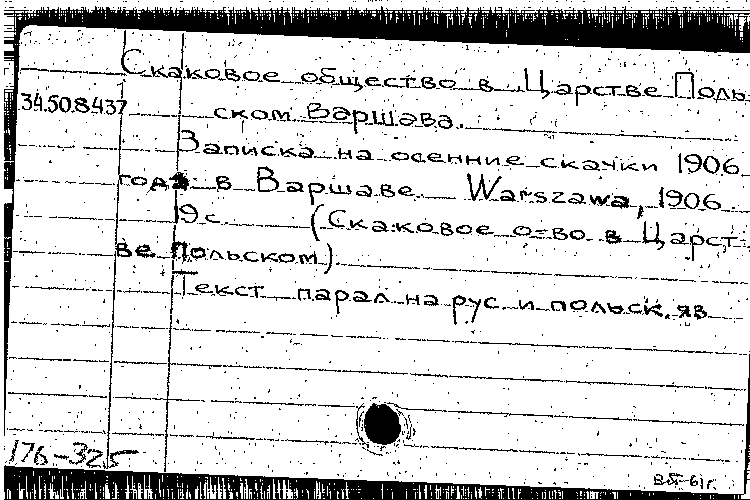 Скаковое общество в Царстве Поль-
34.50.8437
ском Варшава.
Записка на осенние скачки 1906
года в Варшаве. Warszawa, 1906.
19 с. (Скаковое о-во в Царст-
ве Польском)
Текст парал. на рус. и польск. яз.
176-325